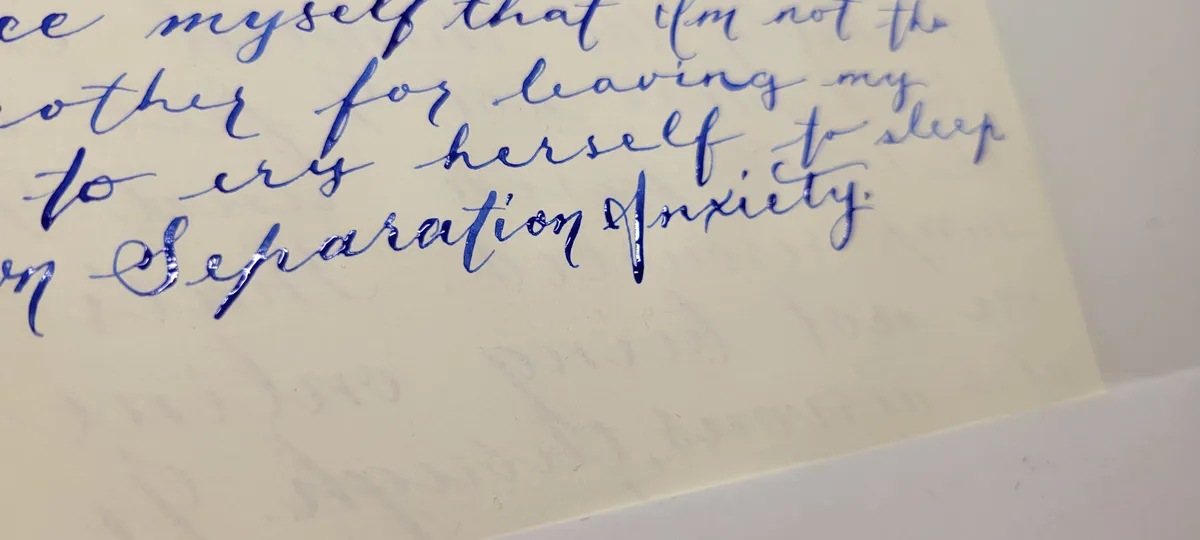 ce myself that I'm not the
other for leaving my
to cry herself to sleep
on Separation Anxiety.